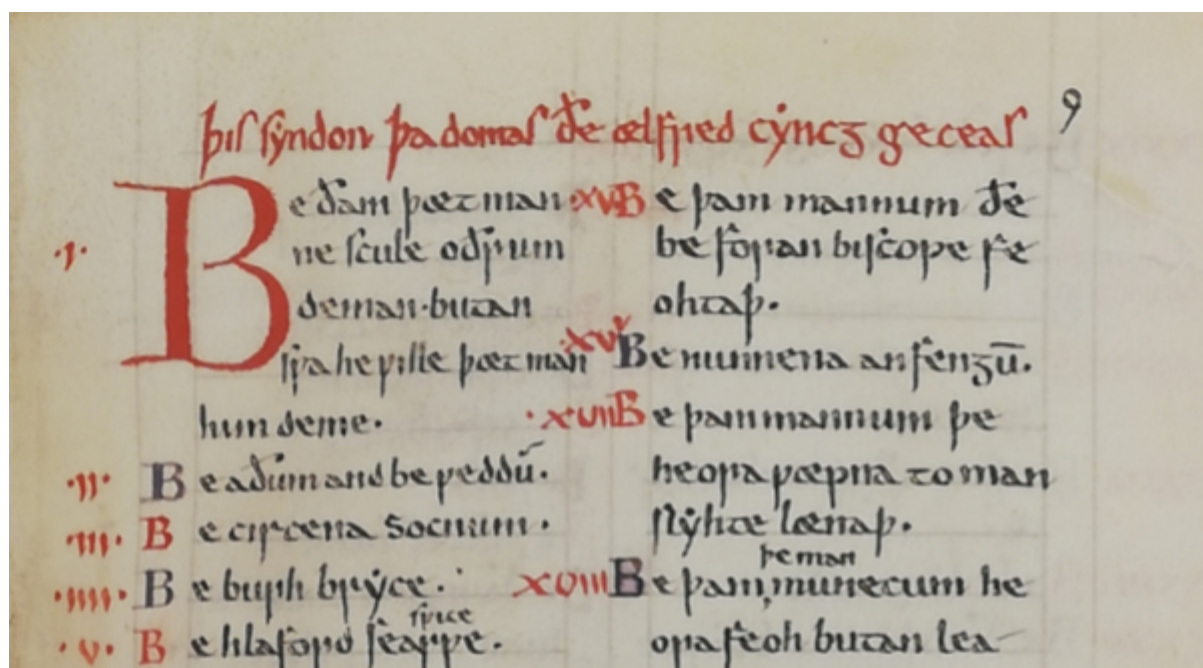 þis sẏndon þa domas ðe ælfred cẏncg geceas
9
·I· Be ðam þæt man
ne scule oðrum
deman·butan
sƿa he ƿille þæt man
him deme.
·II· Be aðum and be ƿeddū.
·III· Be circena socnum.
·IIII· Be burh brẏce.
·V· Be hlaford searƿe.
·XV Be þam mannum ðe
be foran biscope fe
ohtaþ.
·XVI Be nunnena anfengū.
·XVII Be þam mannum þe
heora ƿæpna to man
slẏhte lænaþ.
þe man
XVIII Be þam, munecum he
ora feoh butan lea